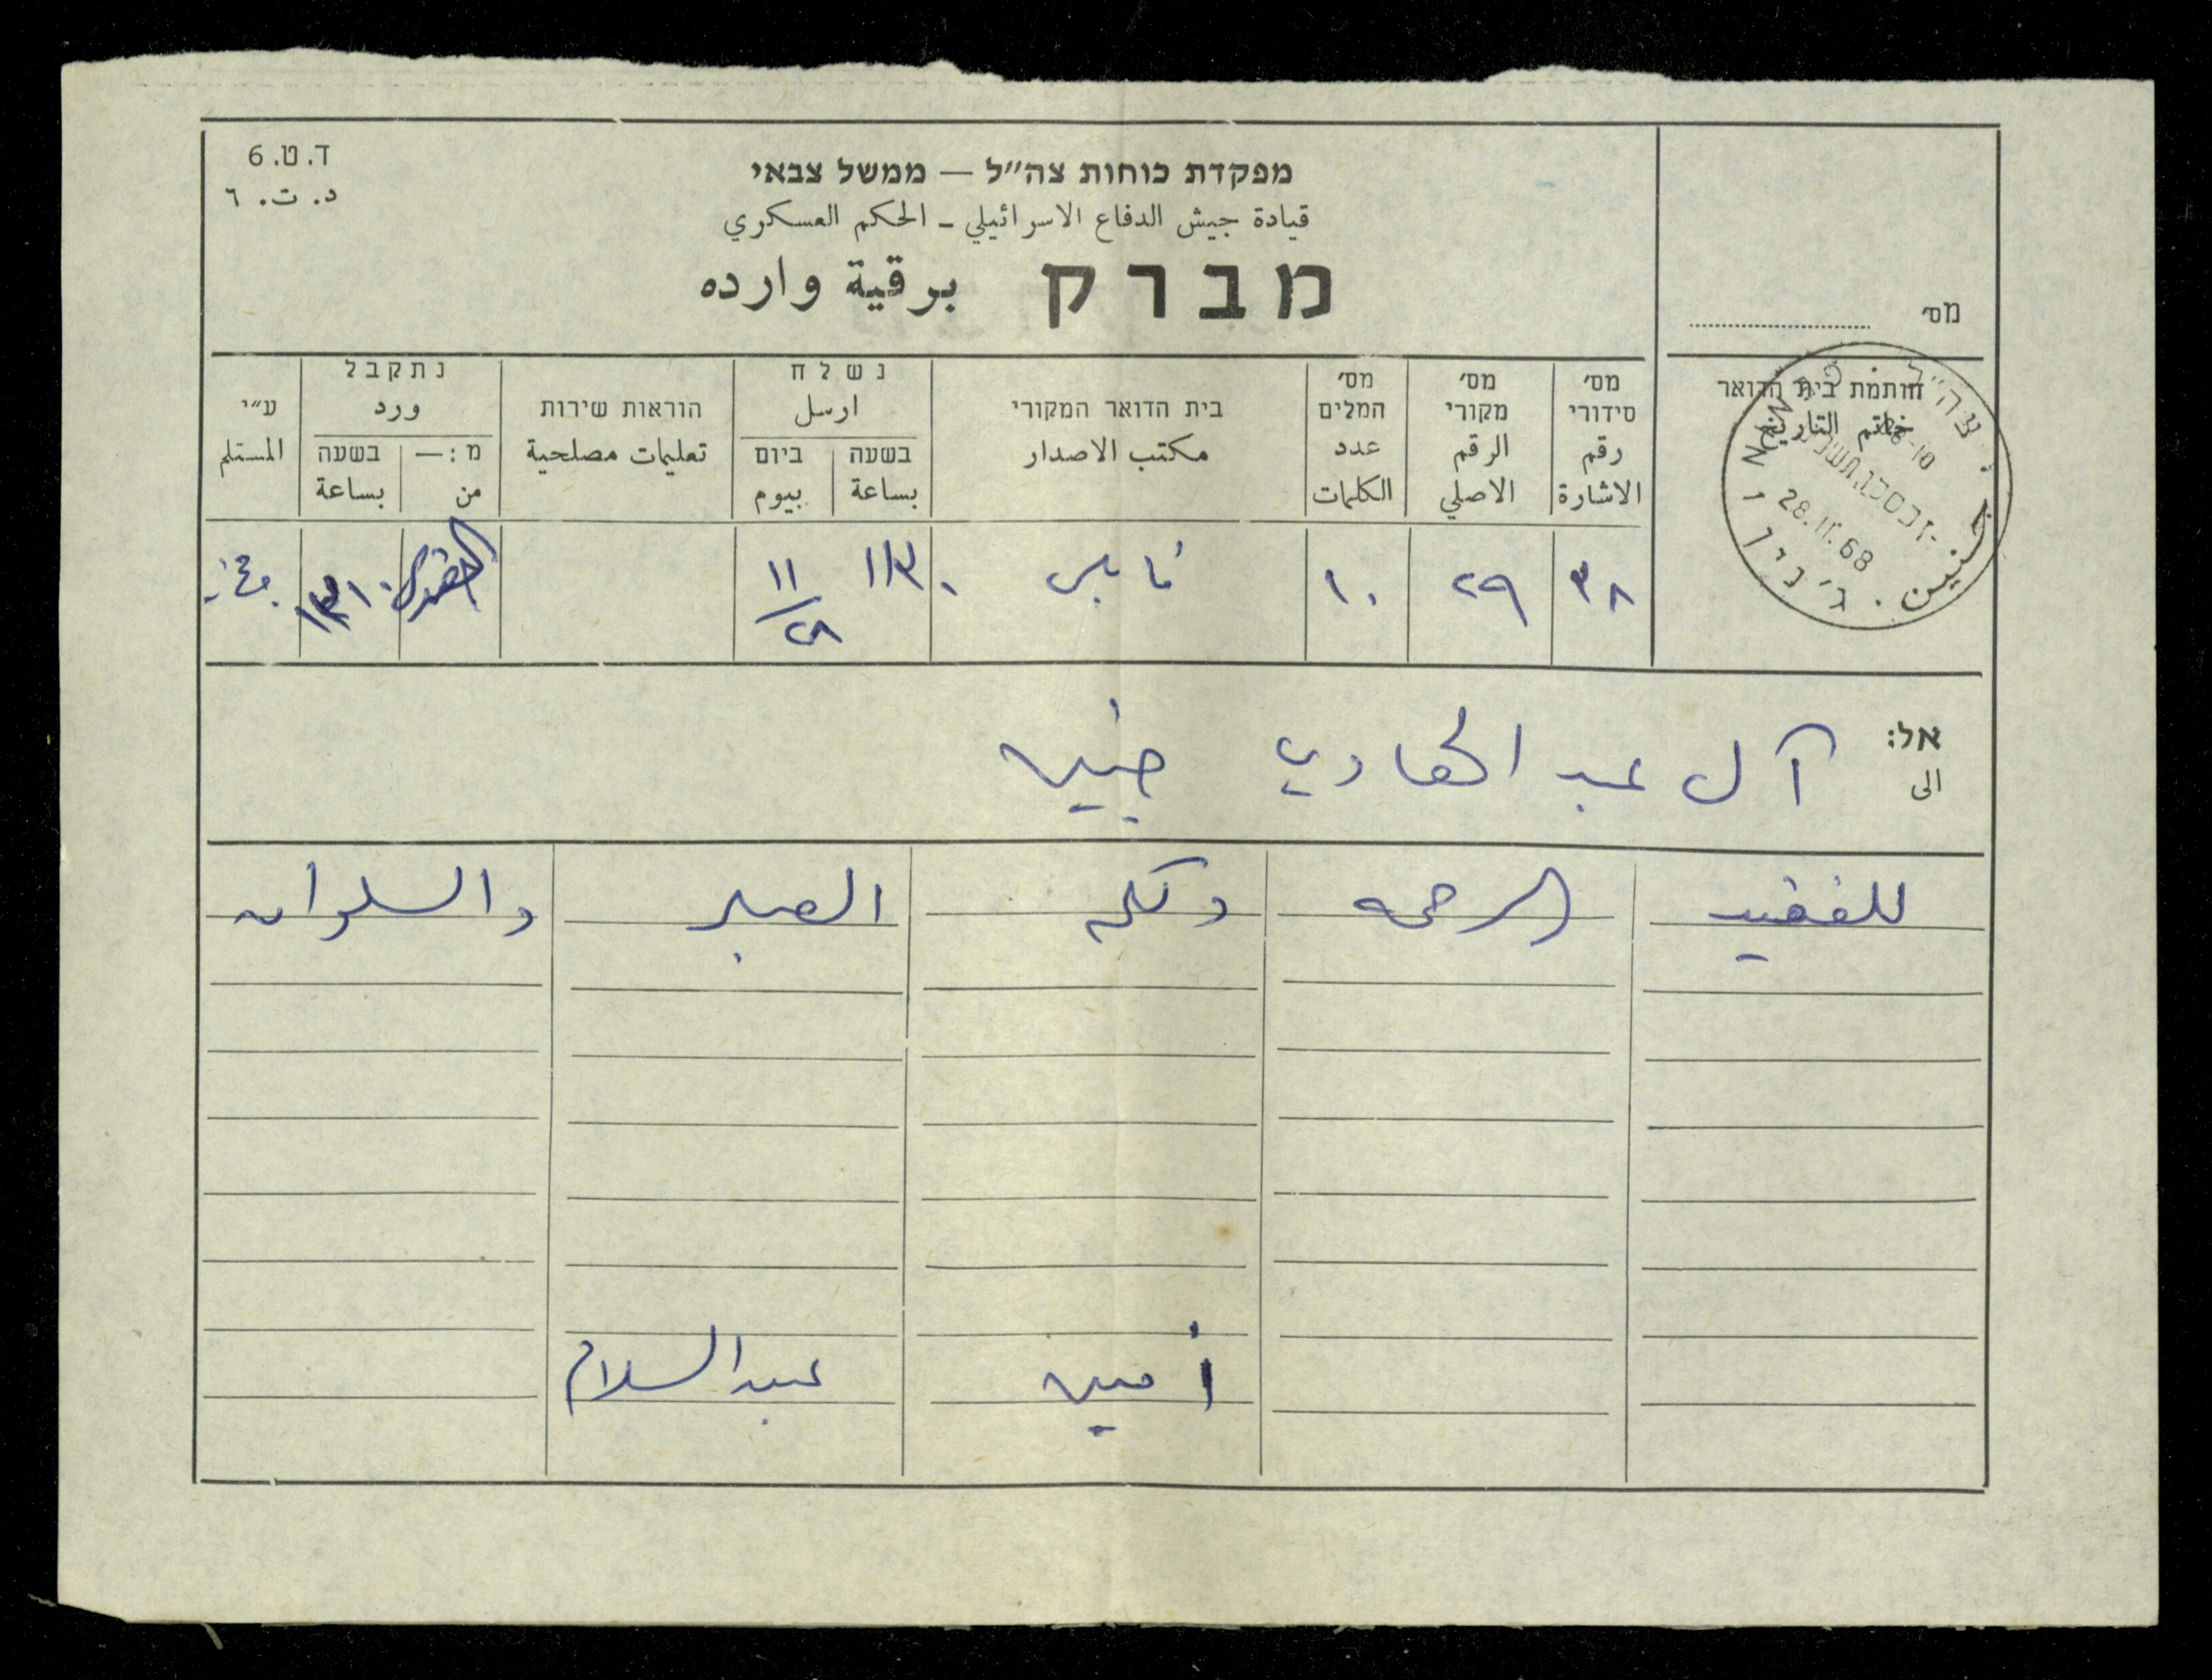 ד.ט.6
د. ت. ٦
מפקדת כוחות צה״ל — ממשל צבאי
قيادة جيش الدفاع الاسرائيلي - الحكم العسكري
מברק برقية وارده
מס׳
חותמת בית הדואר
خاتم التاريخ
28.11.68
جنين . ג׳נין
מס׳ סידורי
رقم الاشارة
מס׳ מקורי
الرقم الاصلي
מס׳ המלים
عدد الكلمات
בית הדואר המקורי
مكتب الاصدار
נשלח
ارسل
בשעה
بساعة
ביום
بيوم
הוראות שירות
تعليمات مصلحية
נתקבל
ورد
מ: —
من
בשעה
بساعة
ע״י
المستلم
٣٨ ٢٩ ١٠ نابلس ١١٣٠ ١١/٢٨
אל:
الى
آل عبد الهادي جنين
للفقيد الرحمه ولكم الصبر والسلوان
أمين عبد السلام